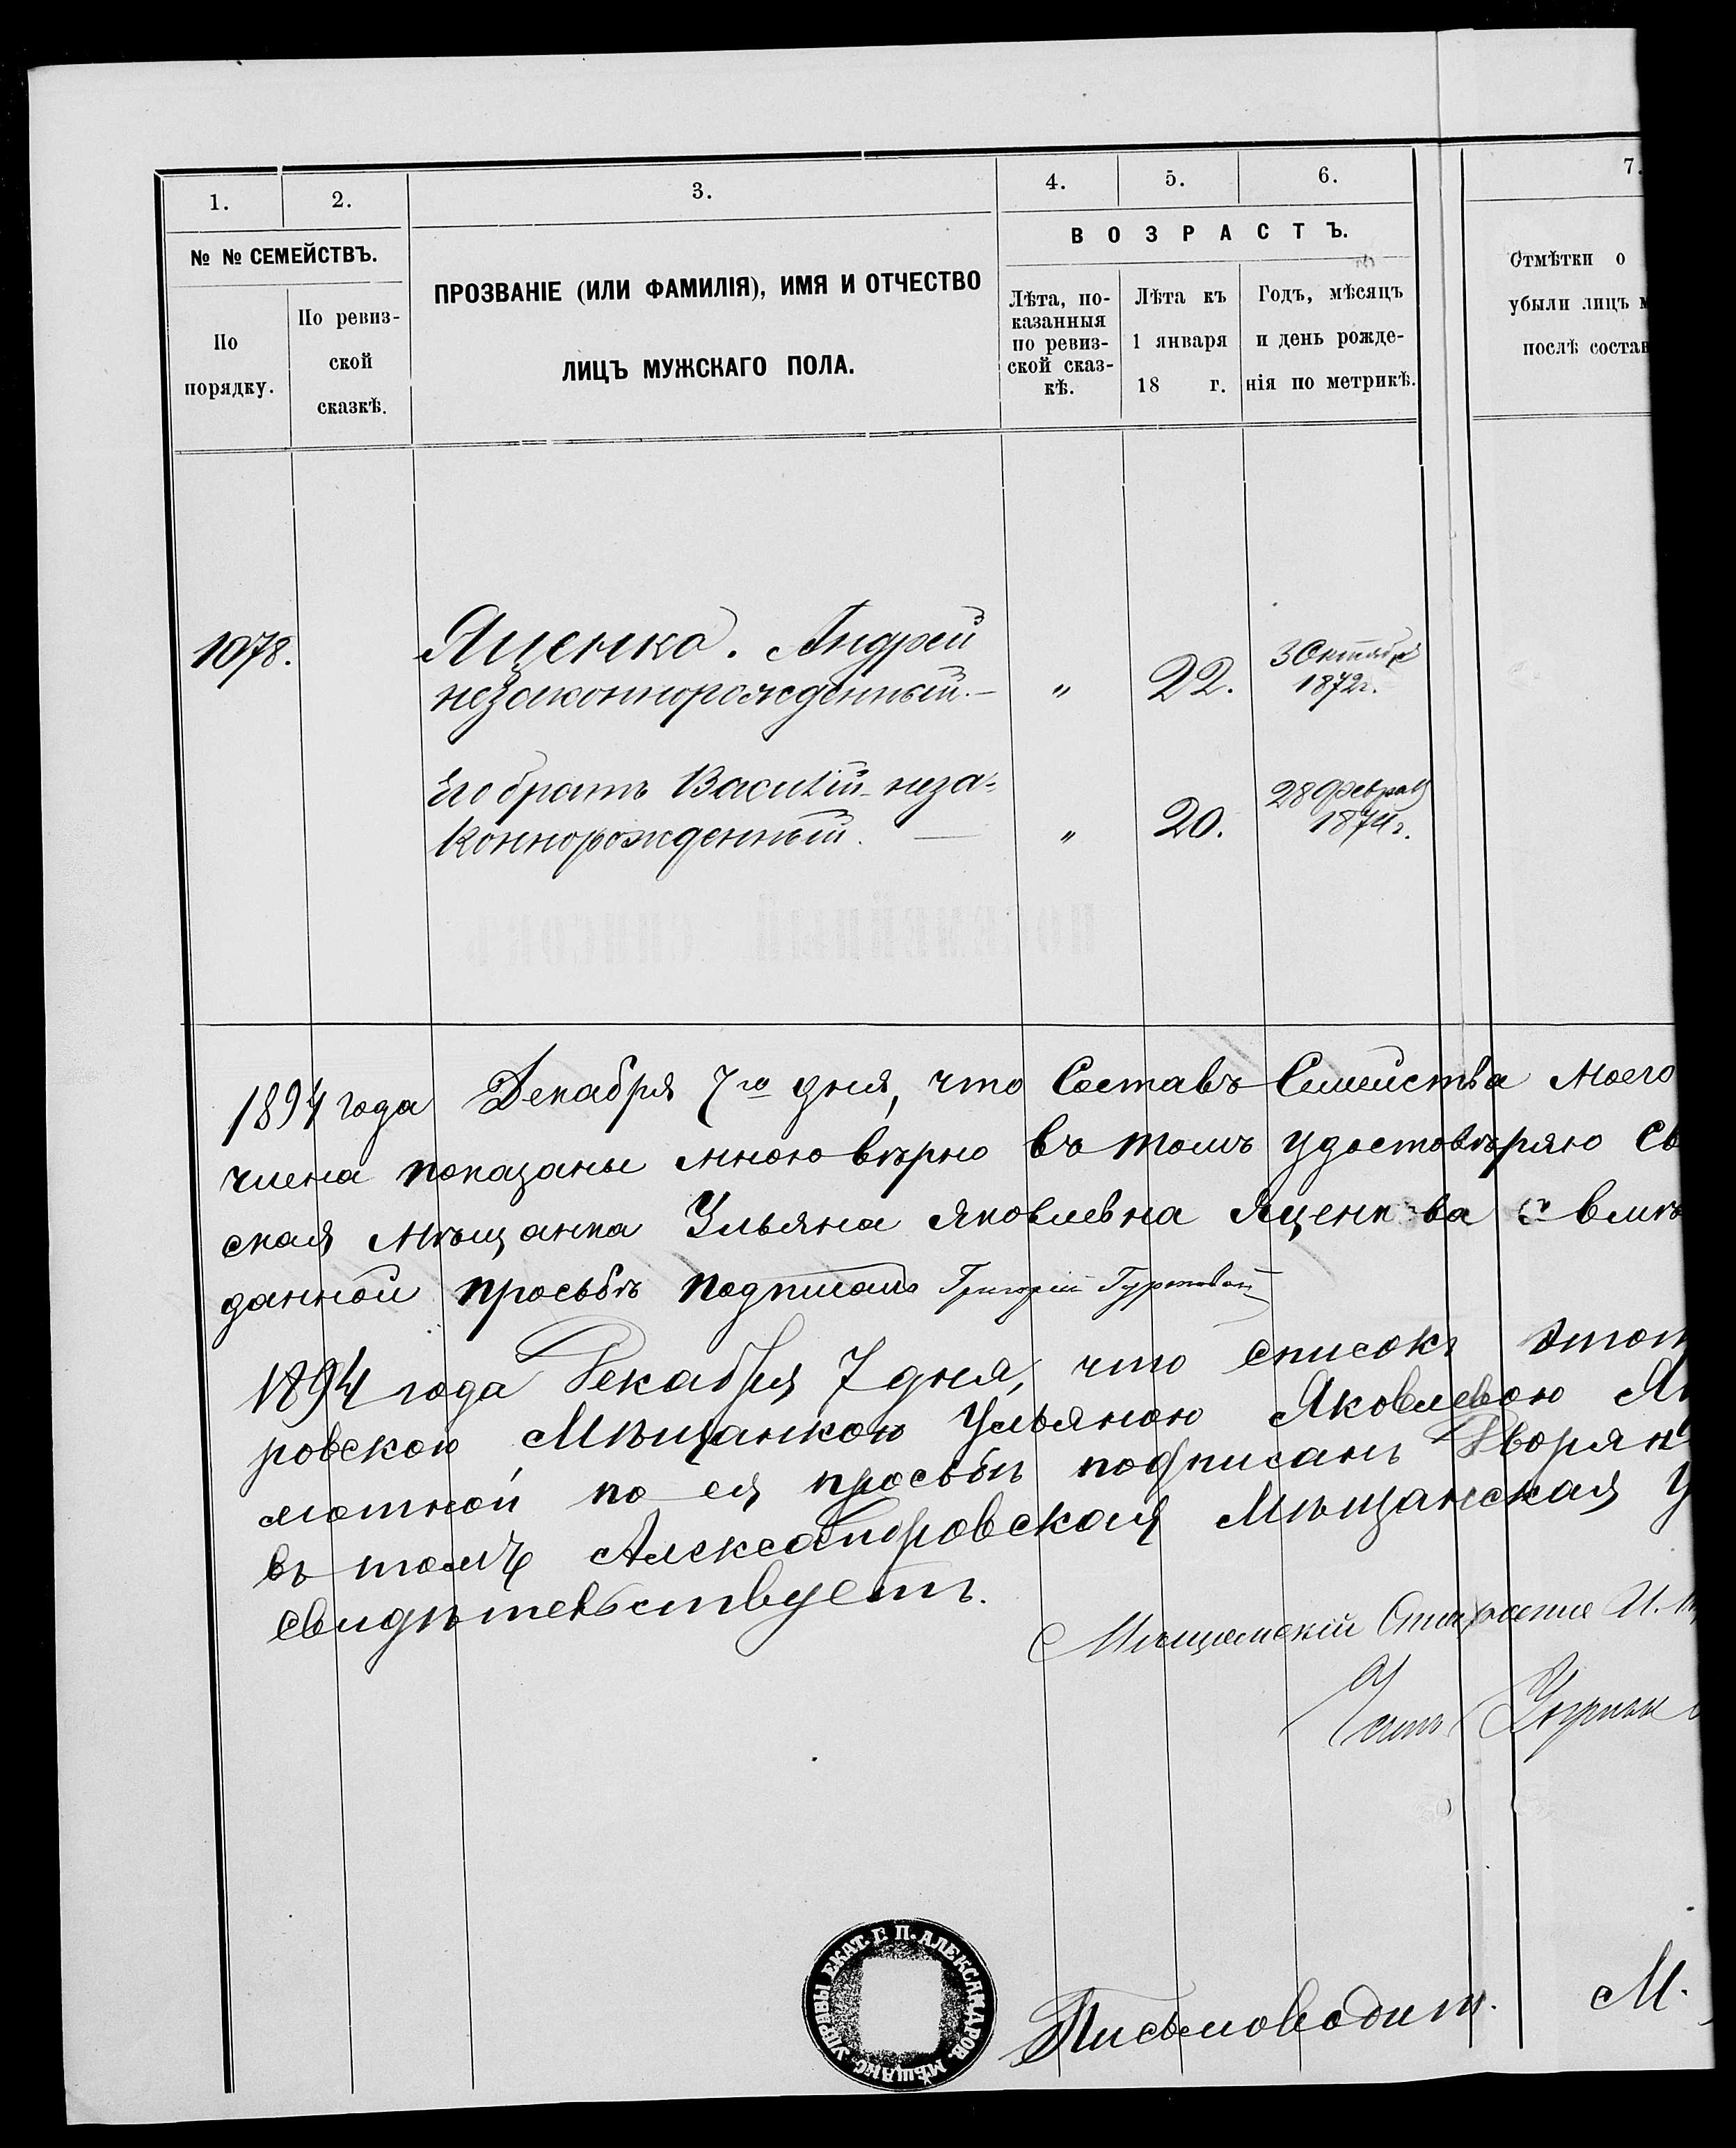 1. 2. 3. 4. 5. 6. 7.
№ № СЕМЕЙСТВЪ.
По порядку.
По ревиз-
ской
сказкѣ.
ПРОЗВАНІЕ (ИЛИ ФАМИЛІЯ), ИМЯ И ОТЧЕСТВО
ЛИЦЪ МУЖСКАГО ПОЛА.
ВОЗРАСТЪ.
Лѣта, по-
казанныя
по ревиз-
ской сказ-
кѣ.
Лѣта къ
1 января
18 г.
Годъ, мѣсяцъ
и день рожде-
нія по метрикѣ.
Отмѣтки о
убыли лицъ м
послѣ состав
1078.
Яценко. Андрей
незаконнорожденный.—
„ 22.
3 Октября
1872г.
Его братъ Василій неза-
коннорожденный. —
„ 20.
28 Феврал
1874г.
ПОСЕМЕЙНЫЙ СПИСОКЪ
1894 года Декабря 7го дня, что Составъ Семейства моего
члена показаны мною вѣрно въ томъ удостовѣряю Св
ская мѣщанка Ульяна Яковлевна Яценкова
данной просьбѣ подписалъ Григорій
1894 года Декабря 7 дня, что списокъ этот
ровскою Мѣщанкою Ульяною Яковлевою Я
мотной по ея просьбѣ подписанъ Дворян
въ томъ Александровская Мѣщанская У
свидѣтельствуетъ.
Мѣщанскій Староста И.
Член
Письмоводит. М.
УПРАВЫ ЕКАТ. Г. П. АЛЕКСАНДРОВ. МѢЩАНС.